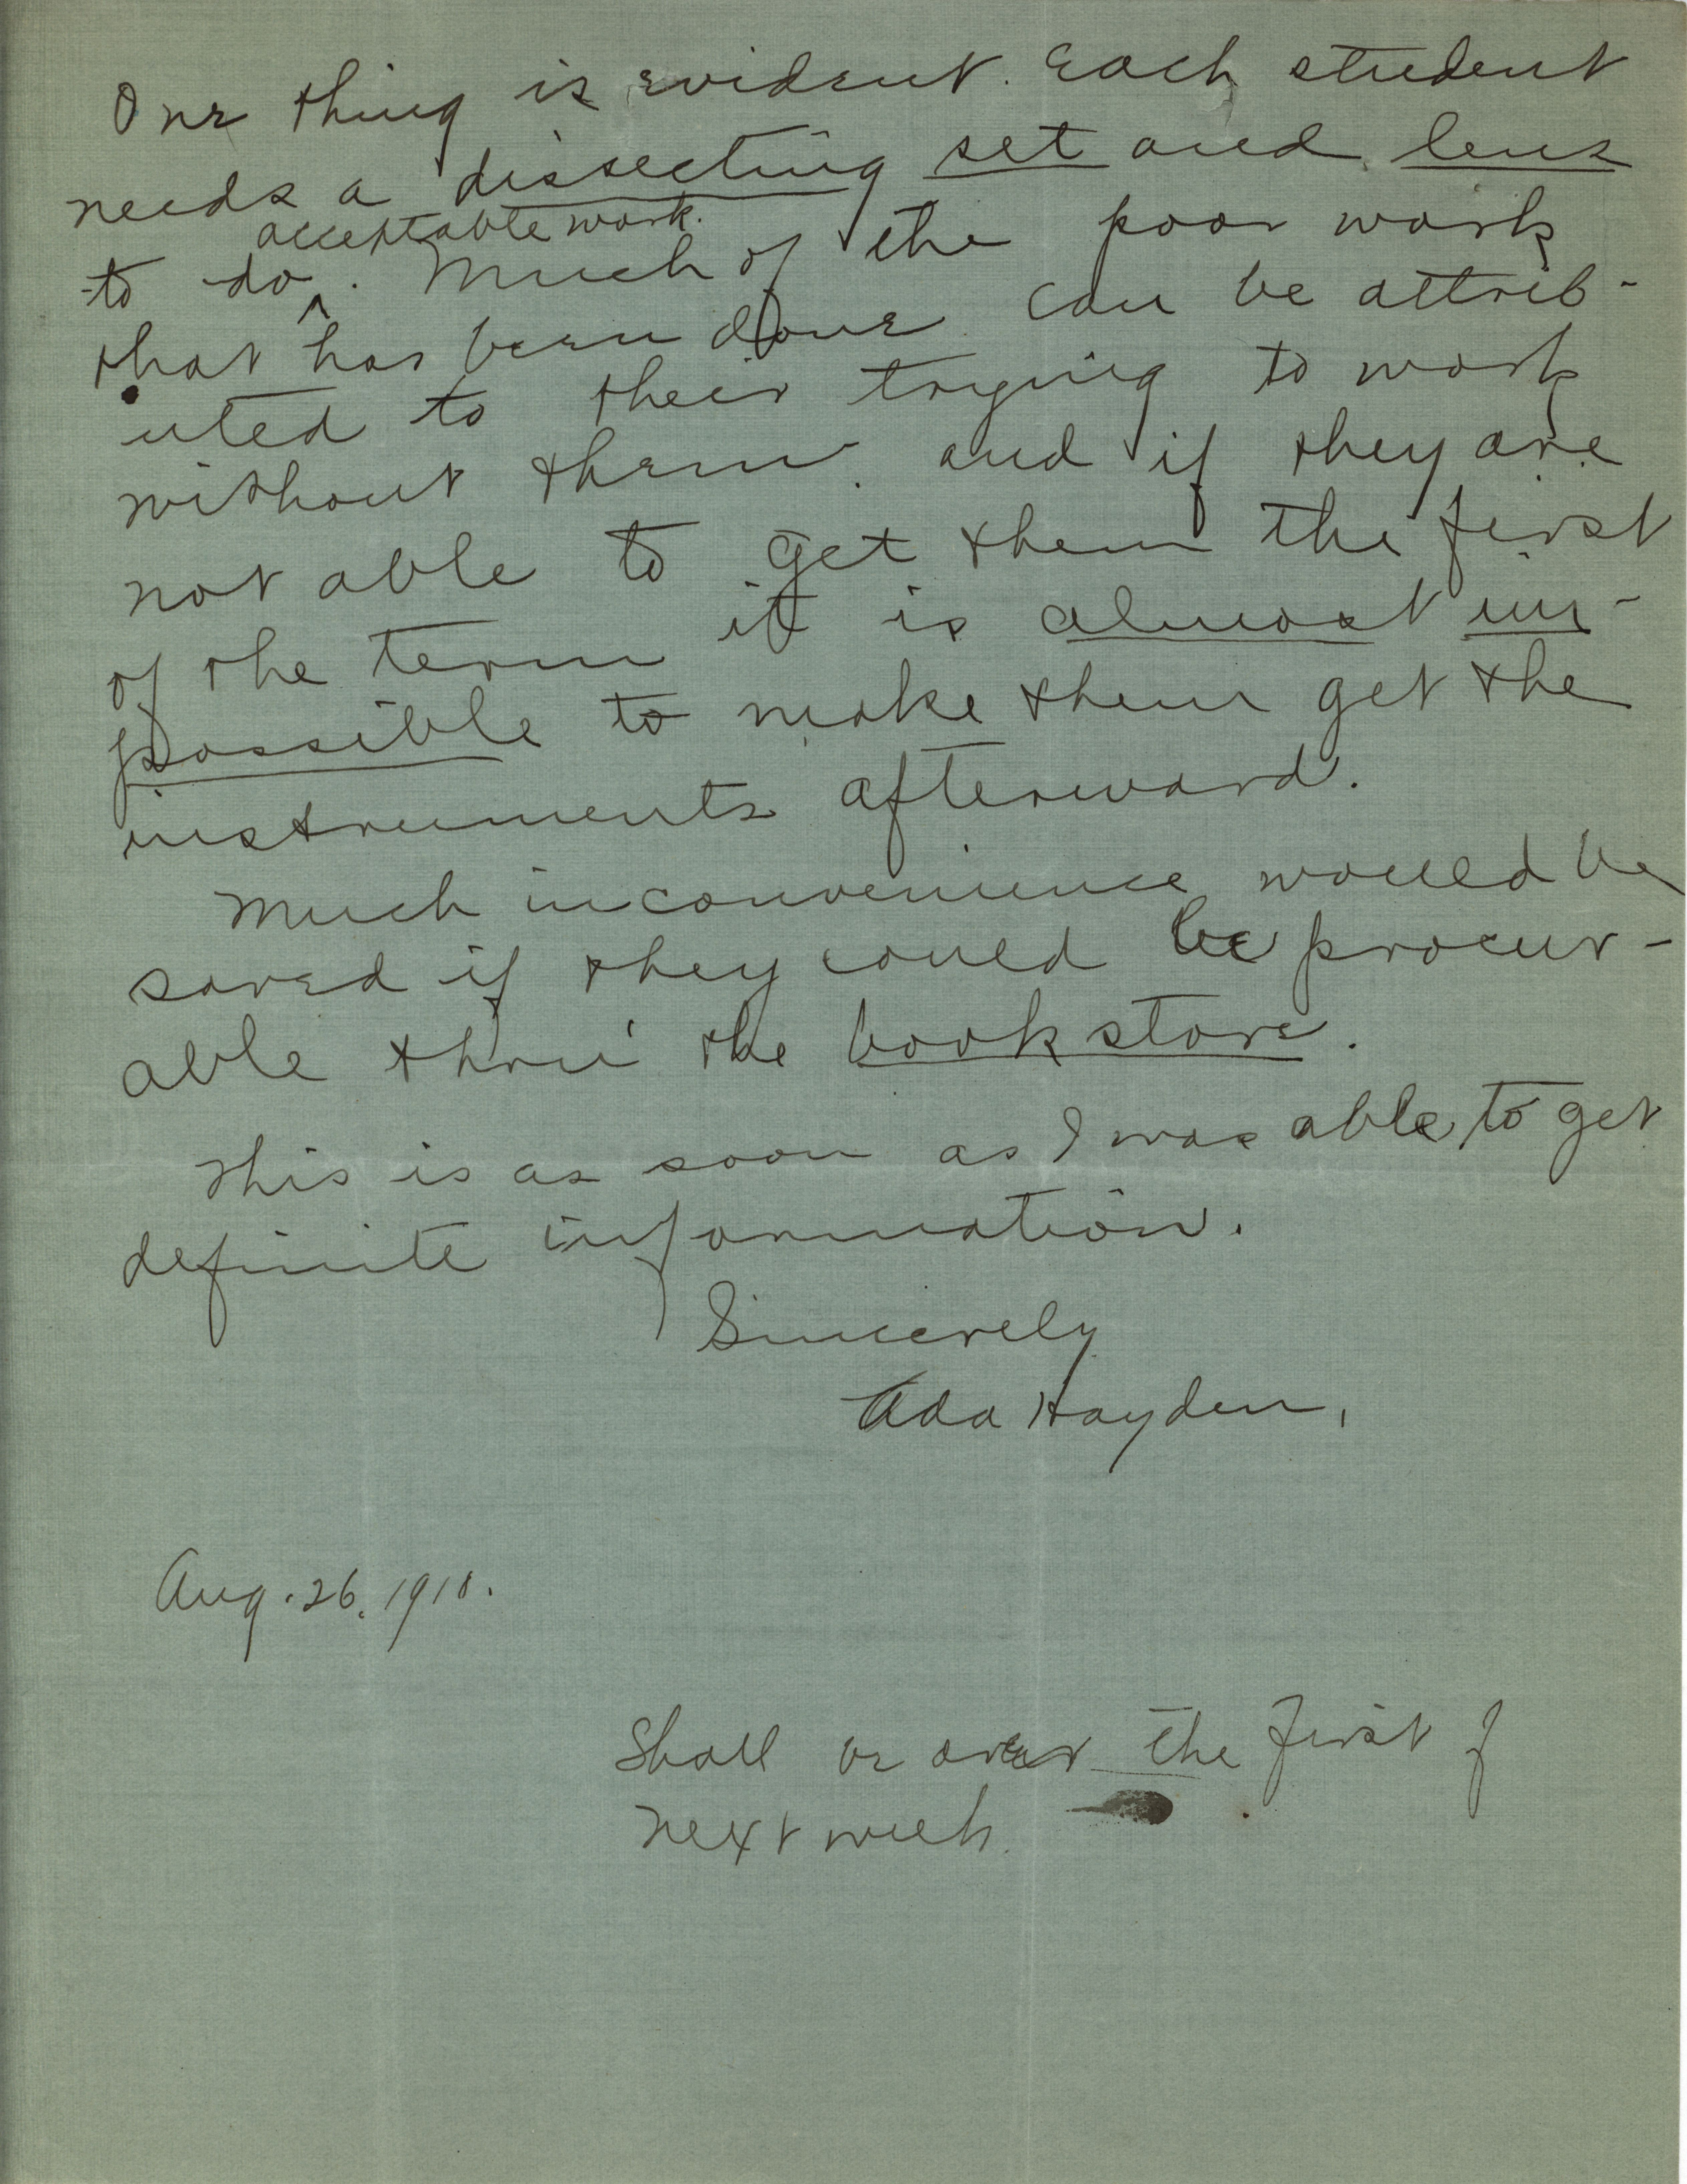 One thing is evident. Each student
needs a dissecting set and lens
acceptable work.
to do ^. Much of the poor work
that has been done can be attrib-
uted to their trying to work
without them. and if they are
not able to get them the first
of the term it is almost im-
possible to make them get the
instruments afterward.
Much inconvenience would be
saved if they could be procur-
able thru' the book store.
This is as soon as I was able to get
definite information.
Sincerely
Ada Hayden.
Aug. 26, 1910.
Shall be over the first of
next week.